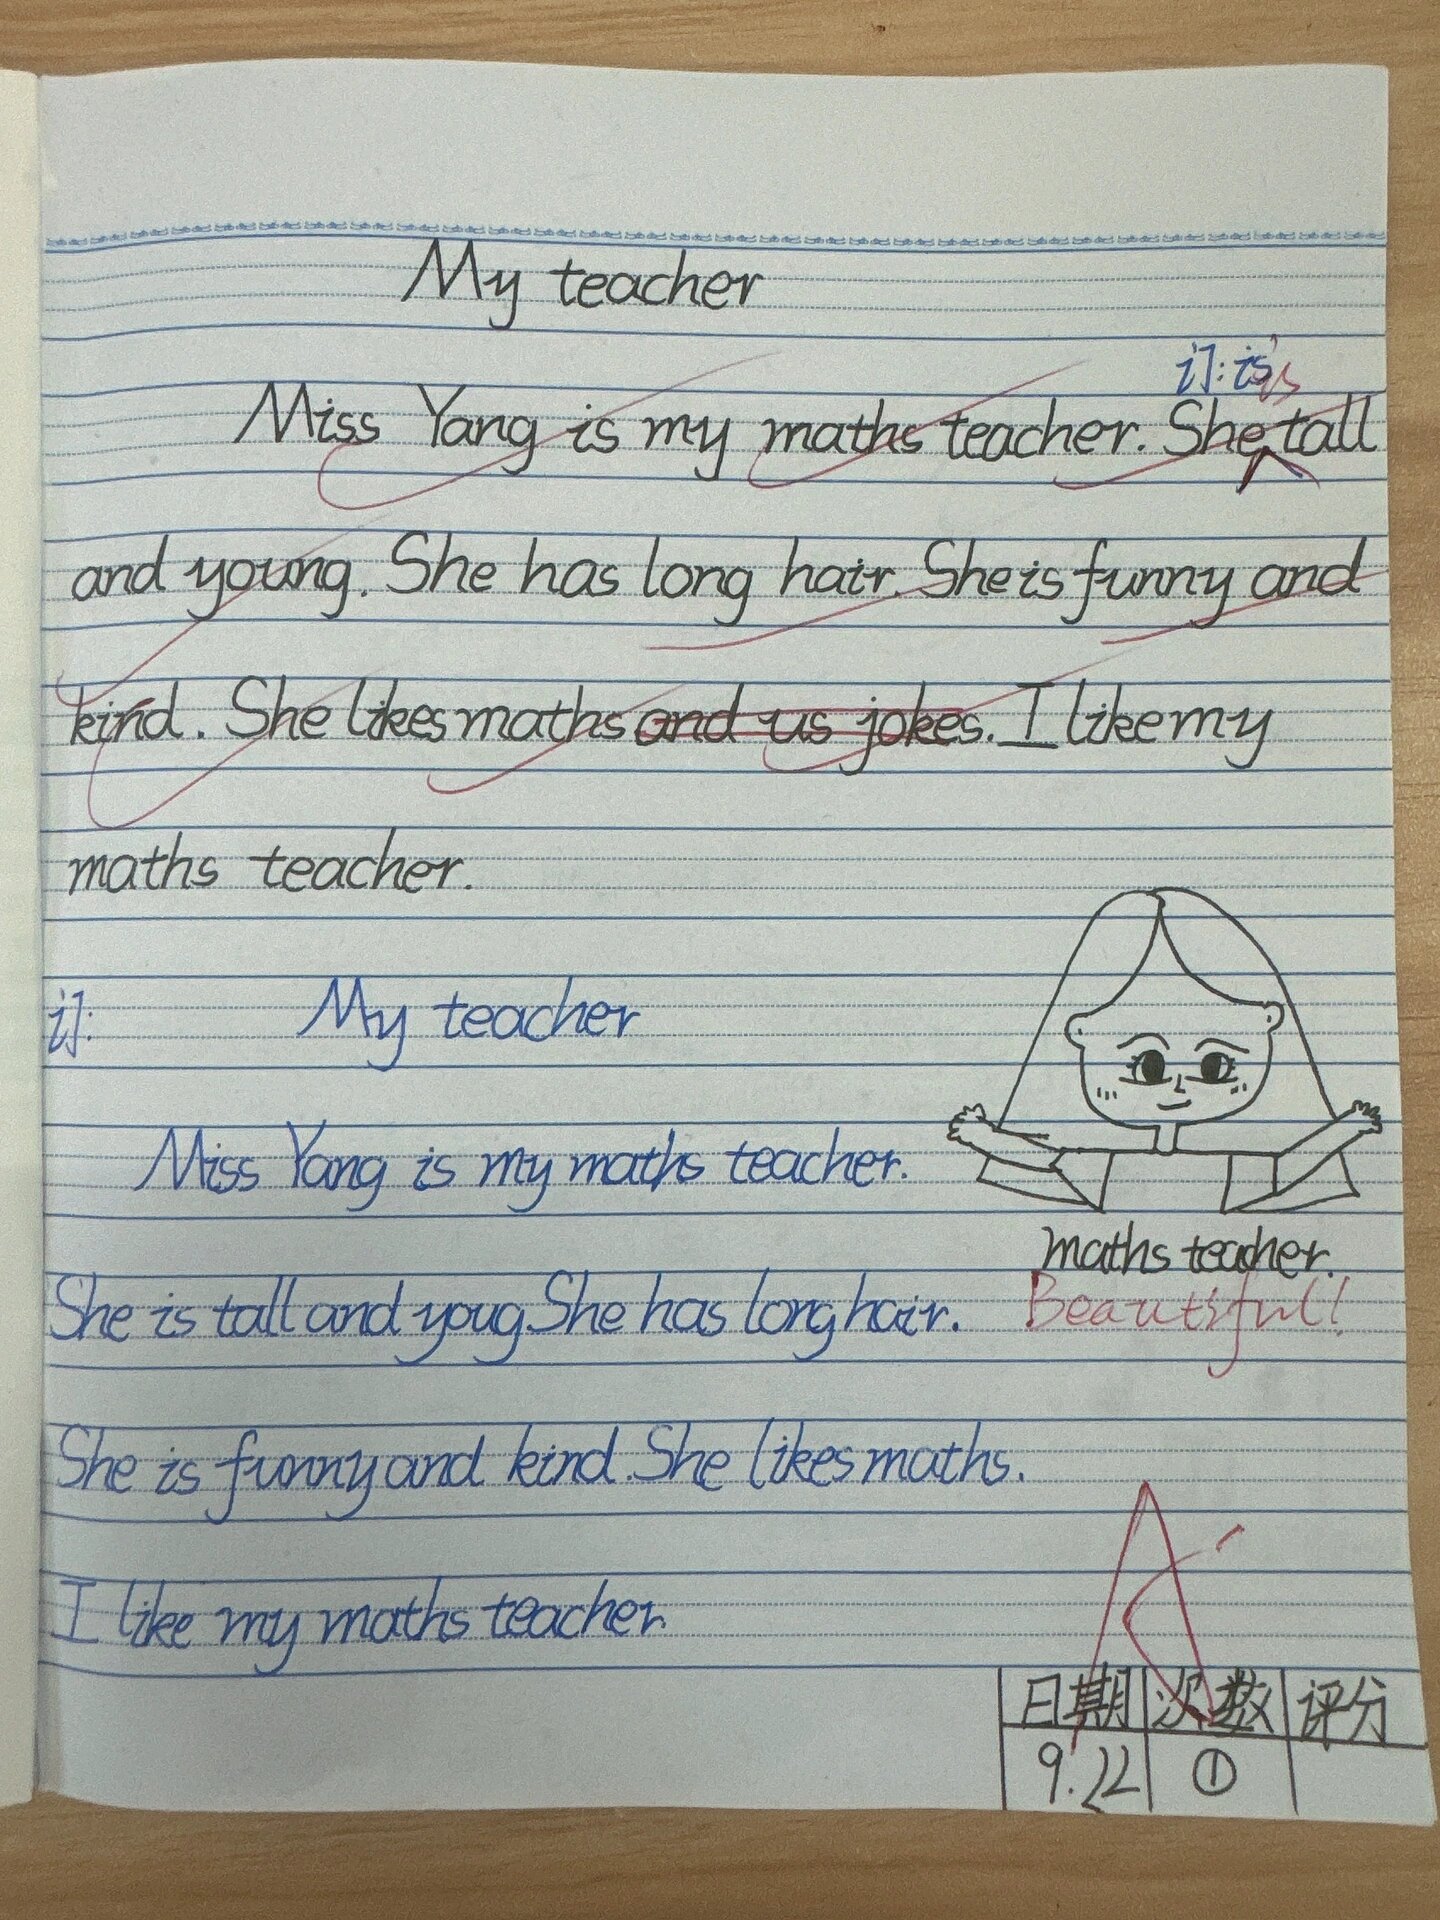 My teacher
订: is is
Miss Yang is my maths teacher. She tall
and young. She has long hair. She is funny and
kind. She likes maths and us jokes. I like my
maths teacher.
订: My teacher
Miss Yang is my maths teacher.
maths teacher.
She is tall and youg. She has long hair.
Beautiful!
She is funny and kind. She likes maths.
I like my maths teacher.
A
日期 次数 评分
9.22 ①